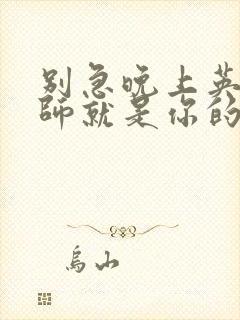 别急晚上英
师就是你的
乌山